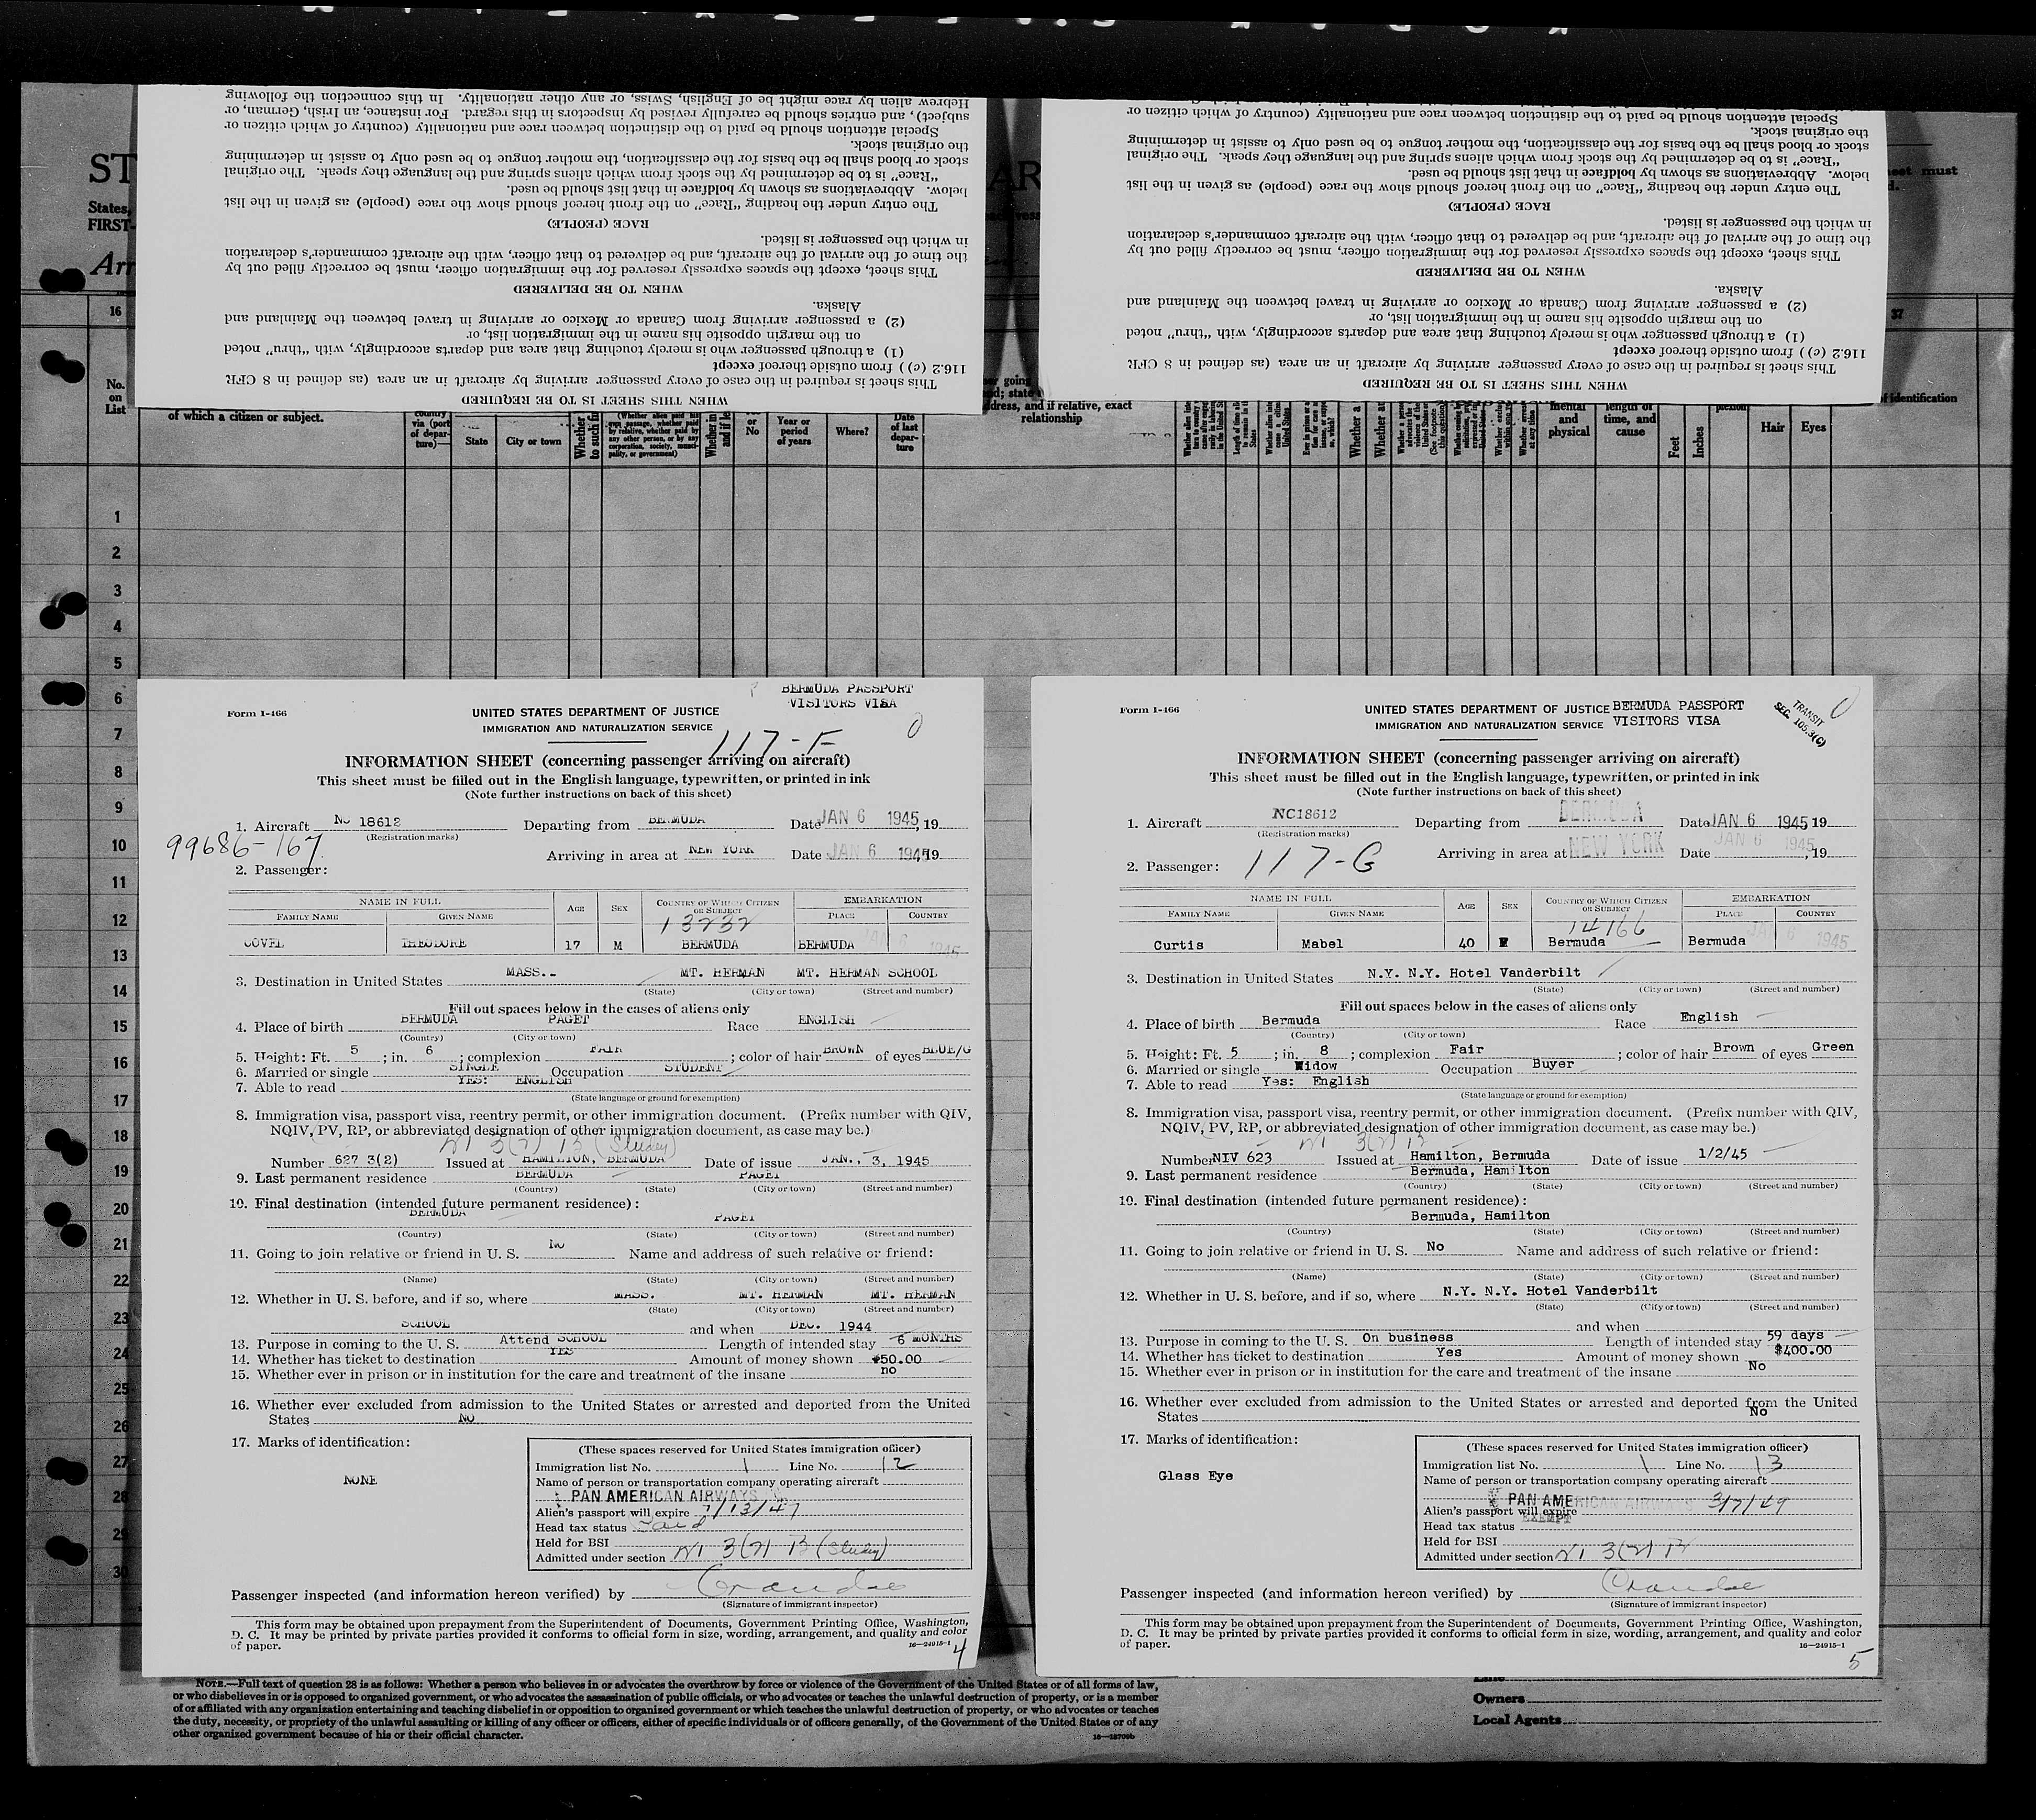 WHEN THIS SHEET IS TO BE REQUIRED
This sheet is required in the case of every passenger arriving by aircraft in an area (as defined in 8 CFR
116.2 (c)) from outside thereof except
(1) a through passenger who is merely touching that area and departs accordingly, with "thru" noted
on the margin opposite his name in the immigration list, or
(2) a passenger arriving from Canada or Mexico or arriving in travel between the Mainland and
Alaska.
WHEN TO BE DELIVERED
This sheet, except the spaces expressly reserved for the immigration officer, must be correctly filled out by
the time of the arrival of the aircraft, and be delivered to that officer, with the aircraft commander's declaration
in which the passenger is listed.
RACE (PEOPLE)
The entry under the heading "Race" on the front hereof should show the race (people) as given in the list
below. Abbreviations as shown by boldface in that list should be used.
"Race" is to be determined by the stock from which aliens spring and the language they speak. The original
stock or blood shall be the basis for the classification, the mother tongue to be used only to assist in determining
the original stock.
Special attention should be paid to the distinction between race and nationality (country of which citizen or
subject), and entries should be carefully revised by inspectors in this regard. For instance, an Irish, German, or
Hebrew alien by race might be of English, Swiss, or any other nationality. In this connection the following
WHEN THIS SHEET IS TO BE REQUIRED
This sheet is required in the case of every passenger arriving by aircraft in an area (as defined in 8 CFR
116.2 (c)) from outside thereof except
(1) a through passenger who is merely touching that area and departs accordingly, with "thru" noted
on the margin opposite his name in the immigration list, or
(2) a passenger arriving from Canada or Mexico or arriving in travel between the Mainland and
Alaska.
WHEN TO BE DELIVERED
This sheet, except the spaces expressly reserved for the immigration officer, must be correctly filled out by
the time of the arrival of the aircraft, and be delivered to that officer, with the aircraft commander's declaration
in which the passenger is listed.
RACE (PEOPLE)
The entry under the heading "Race" on the front hereof should show the race (people) as given in the list
below. Abbreviations as shown by boldface in that list should be used.
"Race" is to be determined by the stock from which aliens spring and the language they speak. The original
stock or blood shall be the basis for the classification, the mother tongue to be used only to assist in determining
the original stock.
Special attention should be paid to the distinction between race and nationality (country of which citizen or
ST
AR
States,
FIRST-
Arr
must
16
37
No.
on
List
of which a citizen or subject.
country
via (port
of depar-
ture)—
State
City or town
Whether
to such
or
No
Year or
period
of years
Where?
Date
of last
depar-
ture
going
state
address, and if relative, exact
relationship
mental
and
physical
length of
time, and
cause
Feet
Inches
Hair
Eyes
identification
1
2
3
4
5
6
7
8
9
10
11
12
13
14
15
16
17
18
19
20
21
22
23
24
25
26
27
28
29
30
BERMUDA PASSPORT
VISITORS VISA
Form I-466
UNITED STATES DEPARTMENT OF JUSTICE
IMMIGRATION AND NATURALIZATION SERVICE
0
117-F
INFORMATION SHEET (concerning passenger arriving on aircraft)
This sheet must be filled out in the English language, typewritten, or printed in ink
(Note further instructions on back of this sheet)
1. Aircraft NC 18612 Departing from BERMUDA Date JAN 6 1945, 19
(Registration marks)
99686-167
Arriving in area at NEW YORK Date JAN 6 1945, 19
2. Passenger:
NAME IN FULL
AGE
SEX
COUNTRY OF WHICH CITIZEN
OR SUBJECT
EMBARKATION
FAMILY NAME
GIVEN NAME
PLACE
COUNTRY
13232
JAN 6 1945
COVEL THEODORE 17 M BERMUDA BERMUDA
3. Destination in United States MASS.. MT. HERMAN MT. HERMAN SCHOOL
(State) (City or town) (Street and number)
Fill out spaces below in the cases of aliens only
4. Place of birth BERMUDA PAGET Race ENGLISH
(Country) (City or town)
5. Height: Ft. 5 ; in. 6 ; complexion FAIR ; color of hair BROWN of eyes BLUE/G
6. Married or single SINGLE Occupation STUDENT
7. Able to read YES: ENGLISH
(State language or ground for exemption)
8. Immigration visa, passport visa, reentry permit, or other immigration document. (Prefix number with QIV,
NQIV, PV, RP, or abbreviated designation of other immigration document, as case may be.)
Number 627 3(2) Issued at HAMILTON, BERMUDA Date of issue JAN., 3, 1945
9. Last permanent residence BERMUDA PAGET
(Country) (State) (City or town) (Street and number)
10. Final destination (intended future permanent residence):
BERMUDA PAGET
(Country) (State) (City or town) (Street and number)
11. Going to join relative or friend in U. S. NO Name and address of such relative or friend:
(Name) (State) (City or town) (Street and number)
12. Whether in U. S. before, and if so, where MASS. MT. HERMAN MT. HERMAN
(State) (City or town) (Street and number)
SCHOOL and when DEC. 1944
13. Purpose in coming to the U. S. Attend SCHOOL Length of intended stay 6 MONTHS
14. Whether has ticket to destination YES Amount of money shown $50.00
15. Whether ever in prison or in institution for the care and treatment of the insane no
16. Whether ever excluded from admission to the United States or arrested and deported from the United
States NO
17. Marks of identification:
NONE
(These spaces reserved for United States immigration officer)
Immigration list No. 1 Line No. 12
Name of person or transportation company operating aircraft
PAN AMERICAN AIRWAYS
Alien's passport will expire 7/13/47
Head tax status Paid
Held for BSI
Admitted under section
Passenger inspected (and information hereon verified) by
(Signature of immigrant inspector)
This form may be obtained upon prepayment from the Superintendent of Documents, Government Printing Office, Washington,
D. C. It may be printed by private parties provided it conforms to official form in size, wording, arrangement, and quality and color
of paper.
16—24915-1
4
Form I-466
UNITED STATES DEPARTMENT OF JUSTICE
IMMIGRATION AND NATURALIZATION SERVICE
BERMUDA PASSPORT
VISITORS VISA
TRANSIT
SEC. 105.3(C)
0
INFORMATION SHEET (concerning passenger arriving on aircraft)
This sheet must be filled out in the English language, typewritten, or printed in ink
(Note further instructions on back of this sheet)
1. Aircraft NC18612 Departing from BERMUDA Date JAN 6 1945 19
(Registration marks)
Arriving in area at NEW YORK Date JAN 6 1945, 19
2. Passenger: 117-G
NAME IN FULL
AGE
SEX
COUNTRY OF WHICH CITIZEN
OR SUBJECT
EMBARKATION
FAMILY NAME
GIVEN NAME
PLACE
COUNTRY
14166
JAN 6 1945
Curtis Mabel 40 F Bermuda Bermuda
3. Destination in United States N.Y. N.Y. Hotel Vanderbilt
(State) (City or town) (Street and number)
Fill out spaces below in the cases of aliens only
4. Place of birth Bermuda Race English
(Country) (City or town)
5. Height: Ft. 5 ; in. 8 ; complexion Fair ; color of hair Brown of eyes Green
6. Married or single Widow Occupation Buyer
7. Able to read Yes: English
(State language or ground for exemption)
8. Immigration visa, passport visa, reentry permit, or other immigration document. (Prefix number with QIV,
NQIV, PV, RP, or abbreviated designation of other immigration document, as case may be.)
Number NIV 623 Issued at Hamilton, Bermuda Date of issue 1/2/45
9. Last permanent residence Bermuda, Hamilton
(Country) (State) (City or town) (Street and number)
10. Final destination (intended future permanent residence):
Bermuda, Hamilton
(Country) (State) (City or town) (Street and number)
11. Going to join relative or friend in U. S. No Name and address of such relative or friend:
(Name) (State) (City or town) (Street and number)
12. Whether in U. S. before, and if so, where N.Y. N.Y. Hotel Vanderbilt
(State) (City or town) (Street and number)
and when
13. Purpose in coming to the U. S. On business Length of intended stay 59 days
14. Whether has ticket to destination Yes Amount of money shown $400.00
15. Whether ever in prison or in institution for the care and treatment of the insane No
16. Whether ever excluded from admission to the United States or arrested and deported from the United
States No
17. Marks of identification:
Glass Eye
(These spaces reserved for United States immigration officer)
Immigration list No. 1 Line No. 13
Name of person or transportation company operating aircraft
PAN AMERICAN AIRWAYS
Alien's passport will expire 3/7/49
Head tax status EXEMPT
Held for BSI
Admitted under section
Passenger inspected (and information hereon verified) by
(Signature of immigrant inspector)
This form may be obtained upon prepayment from the Superintendent of Documents, Government Printing Office, Washington,
D. C. It may be printed by private parties provided it conforms to official form in size, wording, arrangement, and quality and color
of paper.
16—24915-1
5
NOTE.—Full text of question 28 is as follows: Whether a person who believes in or advocates the overthrow by force or violence of the Government of the United States or of all forms of law,
or who disbelieves in or is opposed to organized government, or who advocates the assassination of public officials, or who advocates or teaches the unlawful destruction of property, or is a member
of or affiliated with any organization entertaining and teaching disbelief in or opposition to organized government or which teaches the unlawful destruction of property, or who advocates or teaches
the duty, necessity, or propriety of the unlawful assaulting or killing of any officer or officers, either of specific individuals or of officers generally, of the Government of the United States or of any
other organized government because of his or their official character.
Owners
Local Agents